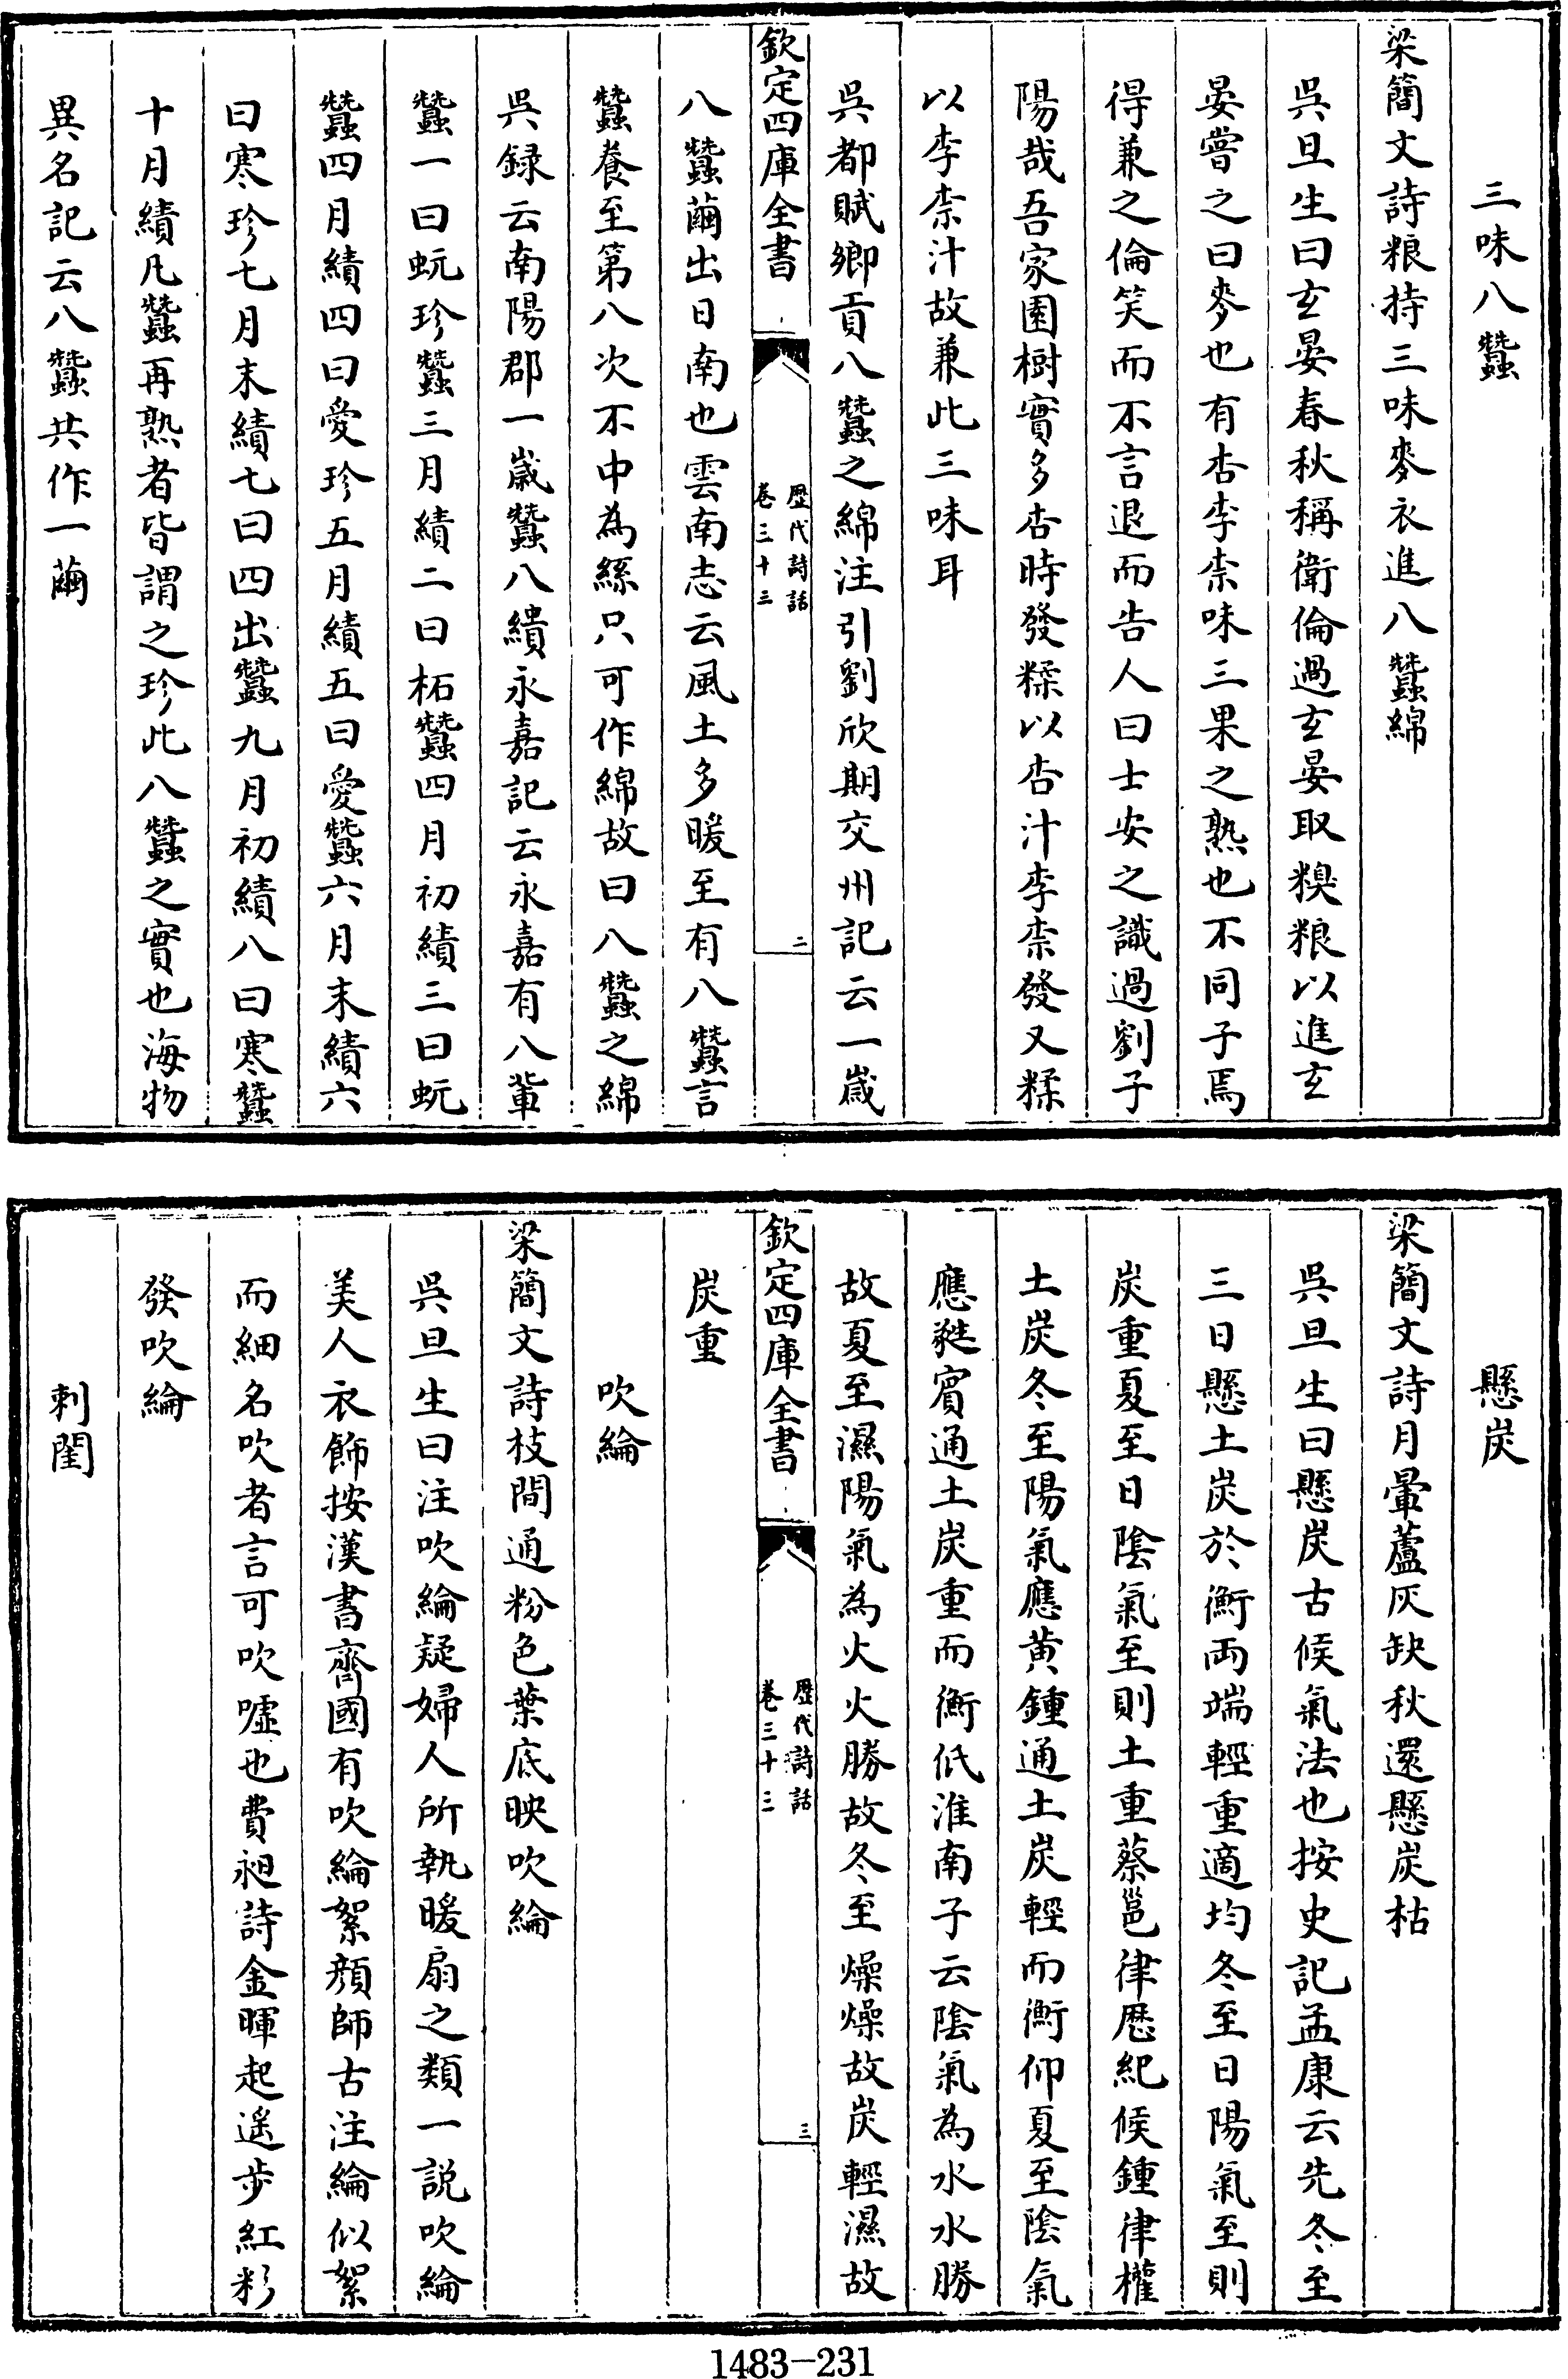 三味八蠶
梁簡文詩粮持三味麥衣進八蠶綿
吳旦生曰玄晏春秋稱衛倫過玄晏取糗粮以進玄
晏嘗之曰麥也有杏李柰味三果之熟也不同子焉
得兼之倫笑而不言退而告人曰士安之識過劉子
陽哉吾家園樹實多杏時發糅以杏汁李柰發又糅
以李柰汁故兼此三味耳
吳都賦鄉貢八蠶之綿注引劉欣期交州記云一歲
欽定四庫全書
歷代詩話
卷三十三
二
八蠶繭出日南也雲南志云風土多暖至有八蠶言
蠶養至第八次不中為絲只可作綿故曰八蠶之綿
吳録云南陽郡一歲蠶八績永嘉記云永嘉有八軰
蠶一曰蚖珍蠶三月績二曰柘蠶四月初績三曰蚖
蠶四月績四曰愛珍五月績五曰愛蠶六月末績六
曰寒珍七月末績七曰四出蠶九月初績八曰寒蠶
十月績凡蠶再熟者皆謂之珍此八蠶之實也海物
異名記云八蠶共作一繭
懸炭
梁簡文詩月暈蘆灰缺秋還懸炭枯
吳旦生曰懸炭古候氣法也按史記孟康云先冬至
三日懸土炭於衡兩端輕重適均冬至日陽氣至則
炭重夏至日陰氣至則土重蔡邕律厯紀候鍾律權
土炭冬至陽氣應黄鍾通土炭輕而衡仰夏至陰氣
應蕤賓通土炭重而衡低淮南子云陰氣為水水勝
故夏至濕陽氣為火火勝故冬至燥燥故炭輕濕故
欽定四庫全書
歷代詩話
卷三十三
三
炭重
吹綸
梁簡文詩枝間通粉色葉底映吹綸
吳旦生曰注吹綸疑婦人所執暖扇之類一說吹綸
美人衣飾按漢書齊國有吹綸絮顔師古注綸似絮
而細名吹者言可吹噓也費昶詩金暉起遥步紅彩
發吹綸
刺閨
1483—231